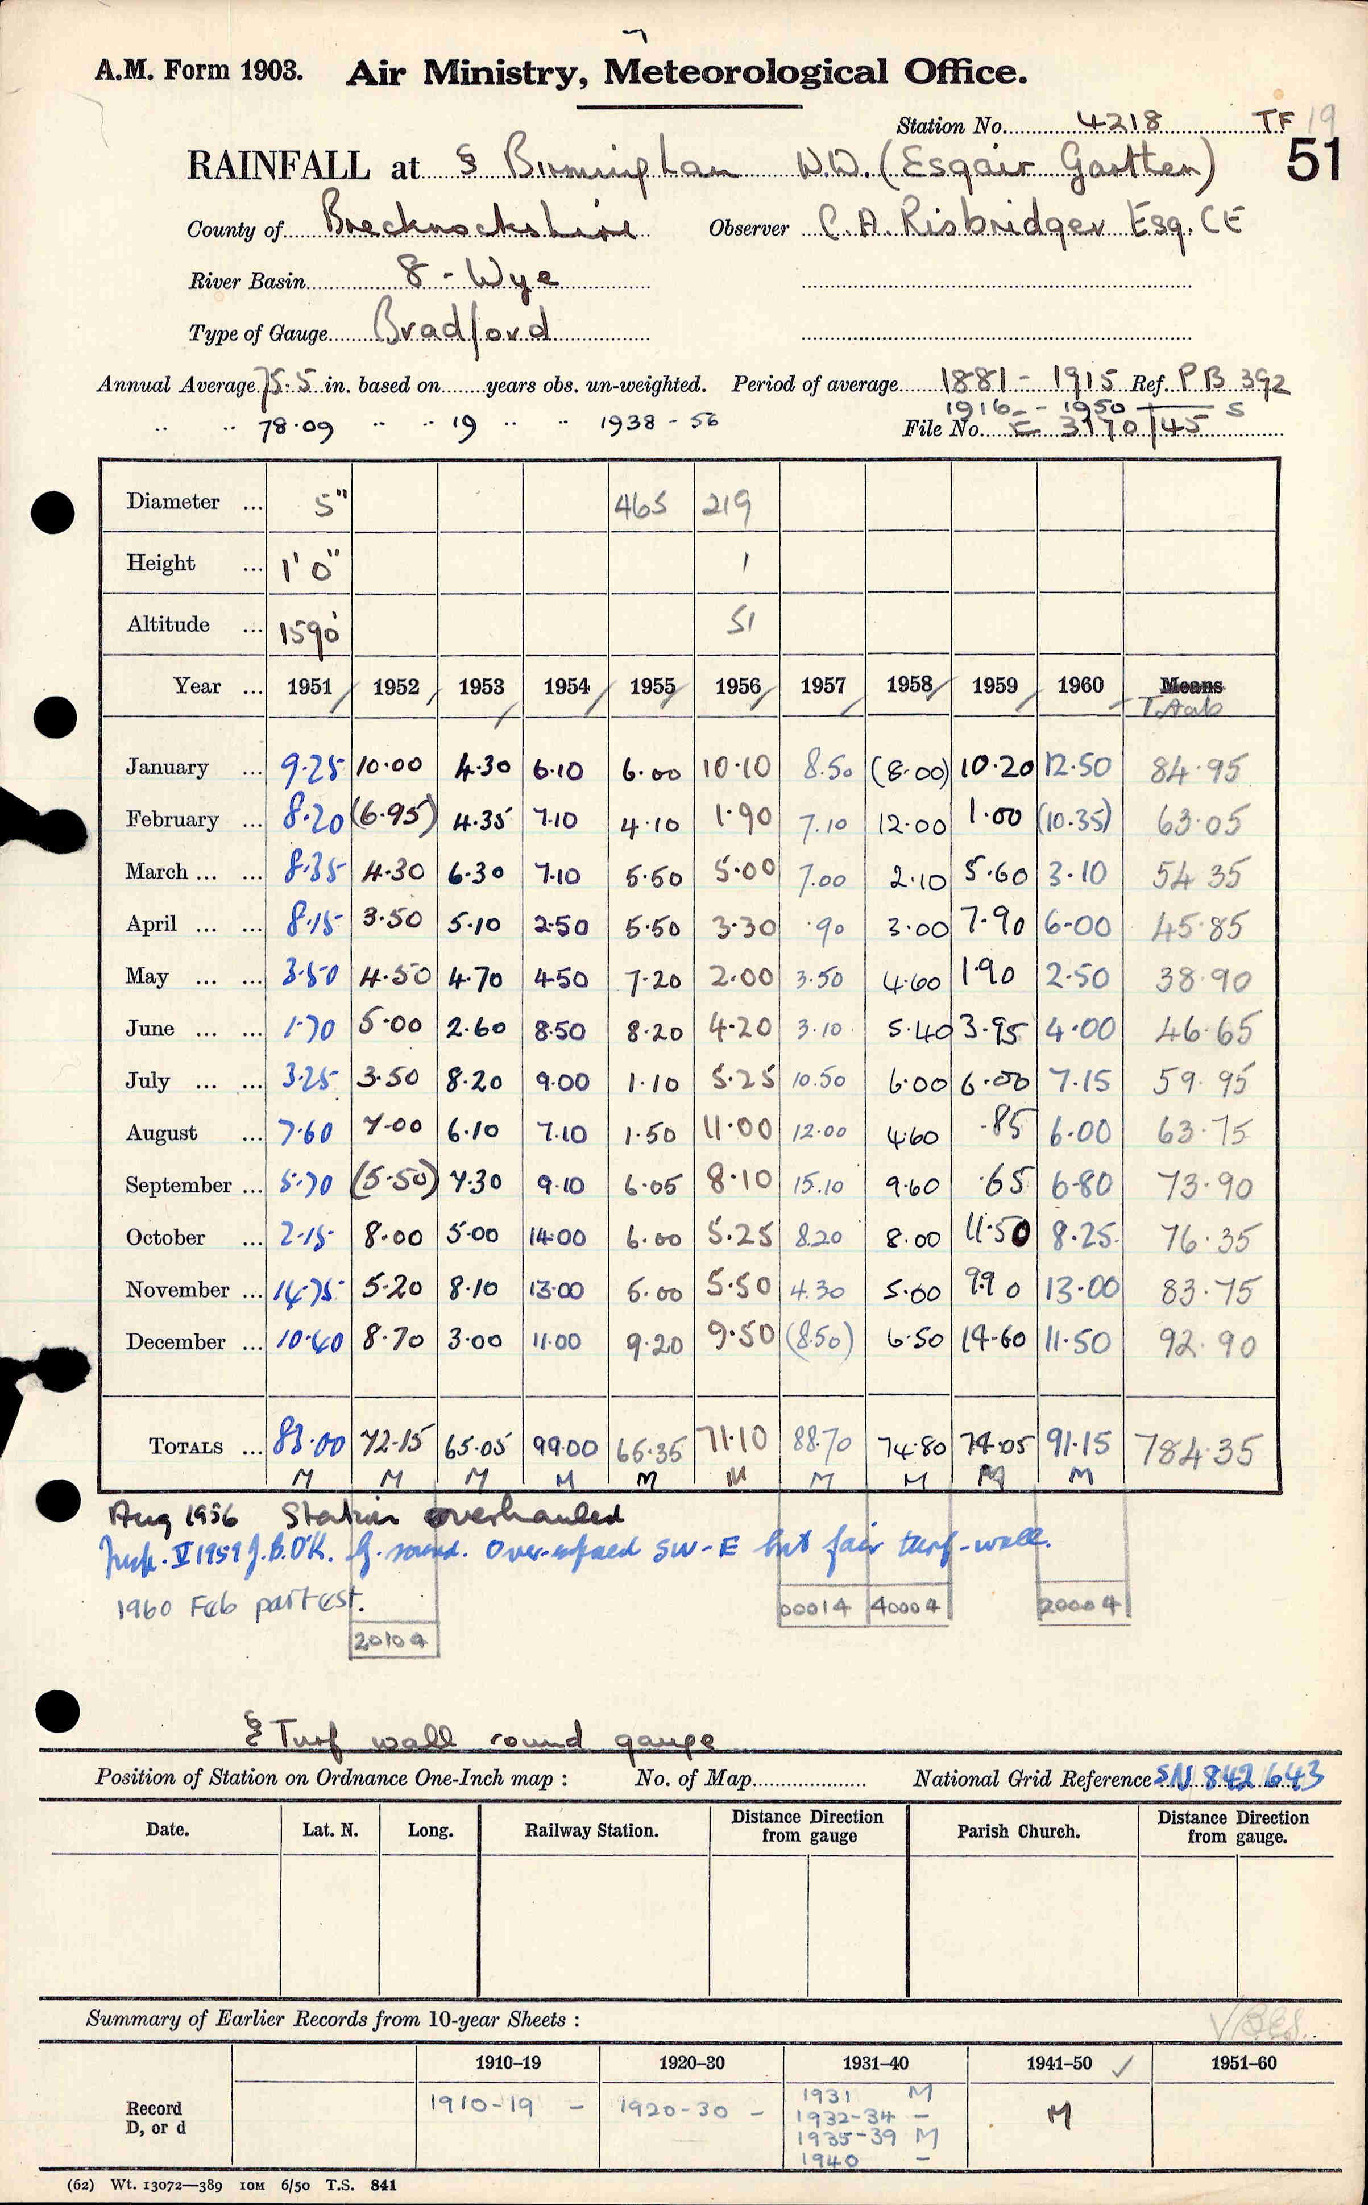 A.M. Form 1903. Air Ministry, Meteorological Office.
Station No. 4218 TF 19
51
RAINFALL at § Birmingham W.W. (Esgair Gartten)
County of Brecknockshire Observer C.A. Risbridger Esq. CE
River Basin 8 - Wye
Type of Gauge Bradford
Annual Average 75.5 in. based on years obs. un-weighted. Period of average 1881 - 1915 Ref. PB 392
1916 - 1950 S
" " 78.09 " " 19 " " 1938 - 56 File No. E 3170/45
Diameter ... 5" 465 219
Height ... 1' 0" 1
Altitude ... 1590' 51
Year ... 1951 1952 1953 1954 1955 1956 1957 1958 1959 1960 Means
Totals
January ... 9.25 10.00 4.30 6.10 6.00 10.10 8.50 (8.00) 10.20 12.50 84.95
February ... 8.20 (6.95) 4.35 7.10 4.10 1.90 7.10 12.00 1.00 (10.35) 63.05
March ... ... 8.35 4.30 6.30 7.10 5.50 5.00 7.00 2.10 5.60 3.10 54 35
April ... ... 8.15 3.50 5.10 2.50 5.50 3.30 .90 3.00 7.90 6.00 45.85
May ... ... 3.50 4.50 4.70 4.50 7.20 2.00 3.50 4.60 1.90 2.50 38.90
June ... ... 1.70 5.00 2.60 8.50 8.20 4.20 3.10 5.40 3.95 4.00 46.65
July ... ... 3.25 3.50 8.20 9.00 1.10 5.25 10.50 6.00 6.00 7.15 59.95
August ... 7.60 7.00 6.10 7.10 1.50 11.00 12.00 4.60 .85 6.00 63.75
September ... 5.70 (5.50) 7.30 9.10 6.05 8.10 15.10 9.60 .65 6.80 73.90
October ... 2.15 8.00 5.00 14.00 6.00 5.25 8.20 8.00 11.50 8.25 76.35
November ... 14.75 5.20 8.10 13.00 5.00 5.50 4.30 5.00 9.90 13.00 83.75
December ... 10.40 8.70 3.00 11.00 9.20 9.50 (8.50) 6.50 14.60 11.50 92.90
TOTALS ... 83.00 72.15 65.05 99.00 65.35 71.10 88.70 74.80 74.05 91.15 784.35
M M M M M M M M M M
Aug 1956 Station overhauled
Insp. V 1959 J.B.O'K. G. sound. Over-exposed SW-E but fair turf-wall.
1960 Feb part est.
00014 40004 20004
20104
§ Turf wall round gauge
Position of Station on Ordnance One-Inch map : No. of Map National Grid Reference SN 842 643
Date. Lat. N. Long. Railway Station. Distance Direction from gauge Parish Church. Distance Direction from gauge.
Summary of Earlier Records from 10-year Sheets :
1910–19 1920–30 1931–40 1941–50 ✓ 1951–60
Record D, or d 1910-19 - 1920-30 - 1931 M M
1932-34 -
1935-39 M
1940 -
(62) Wt. 13072—389 10M 6/50 T.S. 841